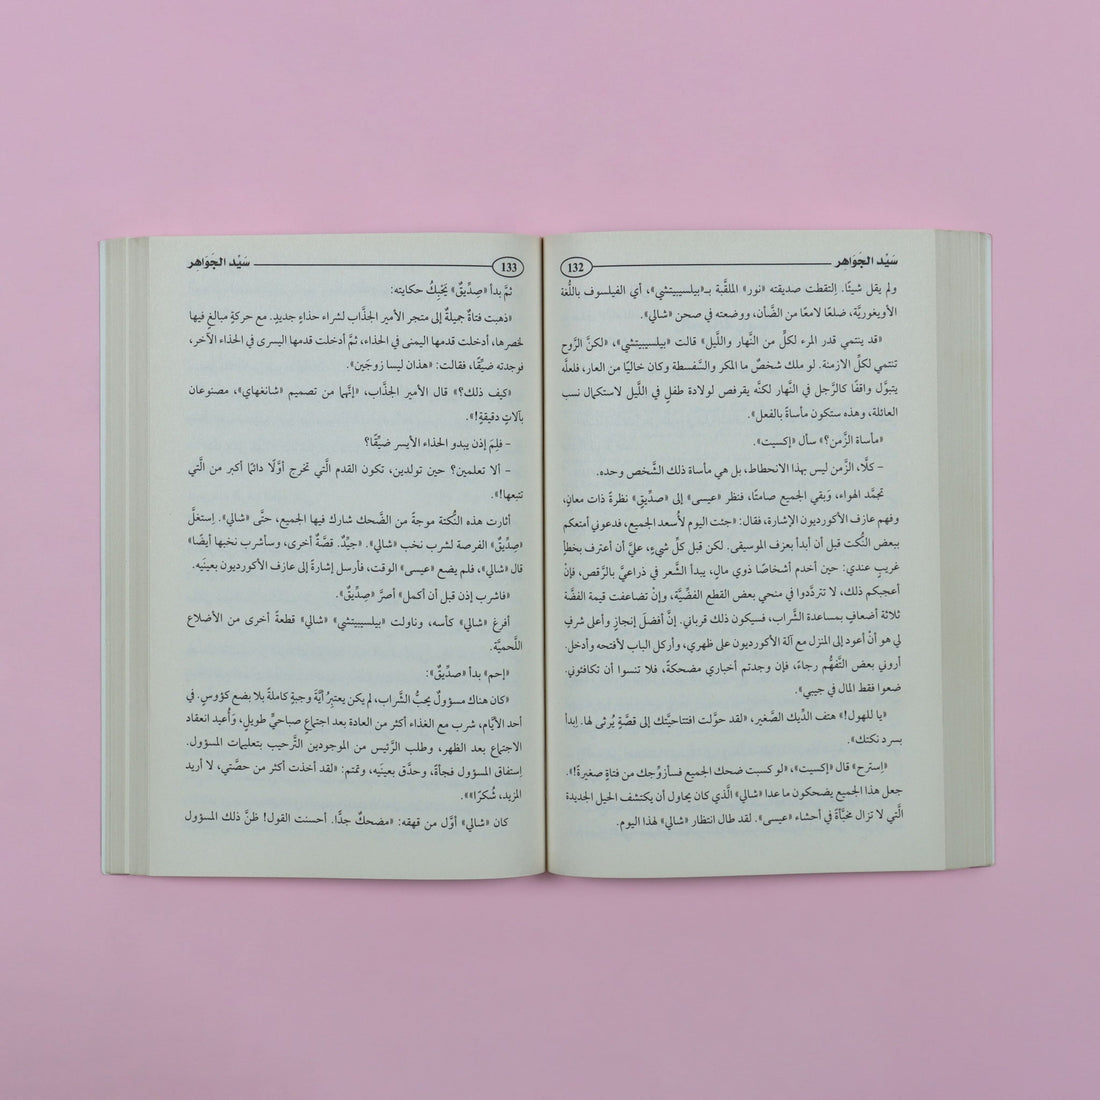 سَيِّد الجَوَاهِر
132
ولم يقل شيئًا. اِلتقطت صديقته «نور» الملقَّبة بـ«بيلسيبيتشي»، أي الفيلسوف باللُّغة
الأويغوريَّة، ضلعًا لامعًا من الضَّأن، ووضعته في صحن «شالي».
«قد ينتمي قدر المرء لكلٍّ من النَّهار واللَّيل» قالت «بيلسيبيتشي»، «لكنَّ الرَّوح
تنتمي لكلِّ الازمنة. لو ملك شخصٌ ما المكر والسَّفسطة وكان خاليًا من العار، فلعلَّه
يتبوَّل واقفًا كالرَّجل في النَّهار لكنَّه يقرفص لولادة طفلٍ في اللَّيل لاستكمال نسب
العائلة، وهذه ستكون مأساةً بالفعل».
«مأساة الزَّمن؟» سأل «إكسيت».
– كلَّا، الزَّمن ليس بهذا الانحطاط، بل هي مأساة ذلك الشَّخص وحده.
تجمَّد الهواء، وبَقي الجميع صامتًا، فنظر «عيسى» إلى «صدِّيقٍ» نظرةً ذات معانٍ،
وفهم عازف الأكورديون الإشارة، فقال: «جئت اليوم لأُسعد الجميع، فدعوني أمتعكم
ببعض النُّكت قبل أن أبدأ بعزف الموسيقى. لكن قبل كلِّ شيءٍ، عليَّ أن أعترف بخطأٍ
غريبٍ عندي: حين أخدم أشخاصًا ذوي مالٍ، يبدأ الشَّعر في ذراعيَّ بالرَّقص، فإنْ
أعجبكم ذلك، لا تتردَّدوا في منحي بعض القطع الفضِّيَّة، وإنْ تضاعفت قيمة الفضَّة
ثلاثة أضعافٍ بمساعدة الشَّراب، فسيكون ذلك قرباني. إنَّ أفضلَ إنجازٍ وأعلى شرفٍ
لي هو أنْ أعود إلى المنزل مع آلة الأكورديون على ظهري، وأركل الباب لأفتحه وأدخل.
أروني بعض التَّفهُّم رجاءً، فإن وجدتم أخباري مضحكةً، فلا تنسوا أن تكافئوني.
ضعوا فقط المال في جيبي».
«يا للهول!» هتف الدِّيك الصَّغير، «لقد حوَّلت افتتاحيَّتك إلى قصَّةٍ يُرثى لها. اِبدأ
بسرد نكتك».
«اِسترح» قال «إكسيت»، «لو كسبت ضحك الجميع فسأزوِّجك من فتاةٍ صغيرةً!».
جعل هذا الجميع يضحكون ما عدا «شالي» الَّذي كان يحاول أن يكتشف الحيل الجديدة
الَّتي لا تزال مخبَّأةً في أحشاء «عيسى». لقد طال انتظار «شالي» لهذا اليوم.
سَيِّد الجَوَاهِر
133
ثمَّ بدأ «صِدِّيقٌ» يَحْبِكُ حكايته:
«ذهبت فتاةٌ جميلةٌ إلى متجر الأمير الجذَّاب لشراء حذاءٍ جديدٍ. مع حركةٍ مبالغ فيها
لخصرها، أدخلت قدمها اليمنى في الحذاء، ثمَّ أدخلت قدمها اليسرى في الحذاء الآخر،
فوجدته ضيِّقًا، فقالت: «هذان ليسا زوجَين».
«كيف ذلك؟» قال الأمير الجذَّاب، «إنَّهما من تصميم «شانغهاي»، مصنوعان
بآلاتٍ دقيقةٍ!».
– فلِمَ إذن يبدو الحذاء الأيسر ضيِّقًا؟
– ألا تعلمين؟ حين تولدين، تكون القدم الَّتي تخرج أوَّلًا دائمًا أكبر من الَّتي
تتبعها!».
أثارت هذه النُّكتة موجةً من الضَّحك شارك فيها الجميع، حتَّى «شالي». اِستغلَّ
«صِدِّيقٌ» الفرصة لشرب نخب «شالي». «جيِّدٌ. قصَّةٌ أخرى، وسأشرب نخبها أيضًا»
قال «شالي»، فلم يضع «عيسى» الوقت، فأرسل إشارةً إلى عازف الأكورديون بعينَيه.
«فاشرب إذن قبل أن أكمل» أصرَّ «صِدِّيقٌ».
أفرغ «شالي» كأسه، وناولت «بيلسيبيتشي» «شالي» قطعةً أخرى من الأضلاع
اللَّحميَّة.
«إحم» بدأ «صدِّيقٌ»:
«كان هناك مسؤولٌ يحبُّ الشَّراب، لم يكن يعتبِرُ أيَّةَ وجبةٍ كاملةً بلا بضع كؤوسٍ. في
أحد الأيَّام، شرب مع الغذاء أكثر من العادة بعد اجتماعٍ صباحيٍّ طويلٍ، وَأُعيد انعقاد
الاجتماع بعد الظهر، وطلب الرَّئيس من الموجودين التَّرحيب بتعليمات المسؤول.
اِستفاق المسؤول فجأةً، وحدَّق بعينَيه، وتمتم: «لقد أخذت أكثر من حصَّتي، لا أريد
المزيد، شُكرًا»».
كان «شالي» أوَّل من قهقه: «مضحكٌ جدًّا. أحسنت القول! ظنَّ ذلك المسؤول